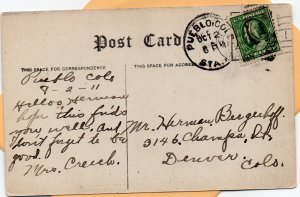 Post Card
THIS SPACE FOR CORRESPONDENCE
THIS SPACE IS FOR ADDRESS
PUEBLO, COLO.
OCT 2
6 PM
STA. A
Pueblo Colo
8-2-11
Helloo, Herman
hope this finds
you well, and
don't forget to be
good.
Mrs. Creech.
Mr. Herman, Bergerhoff.
3146. Champa, St,
Denver
Colo.